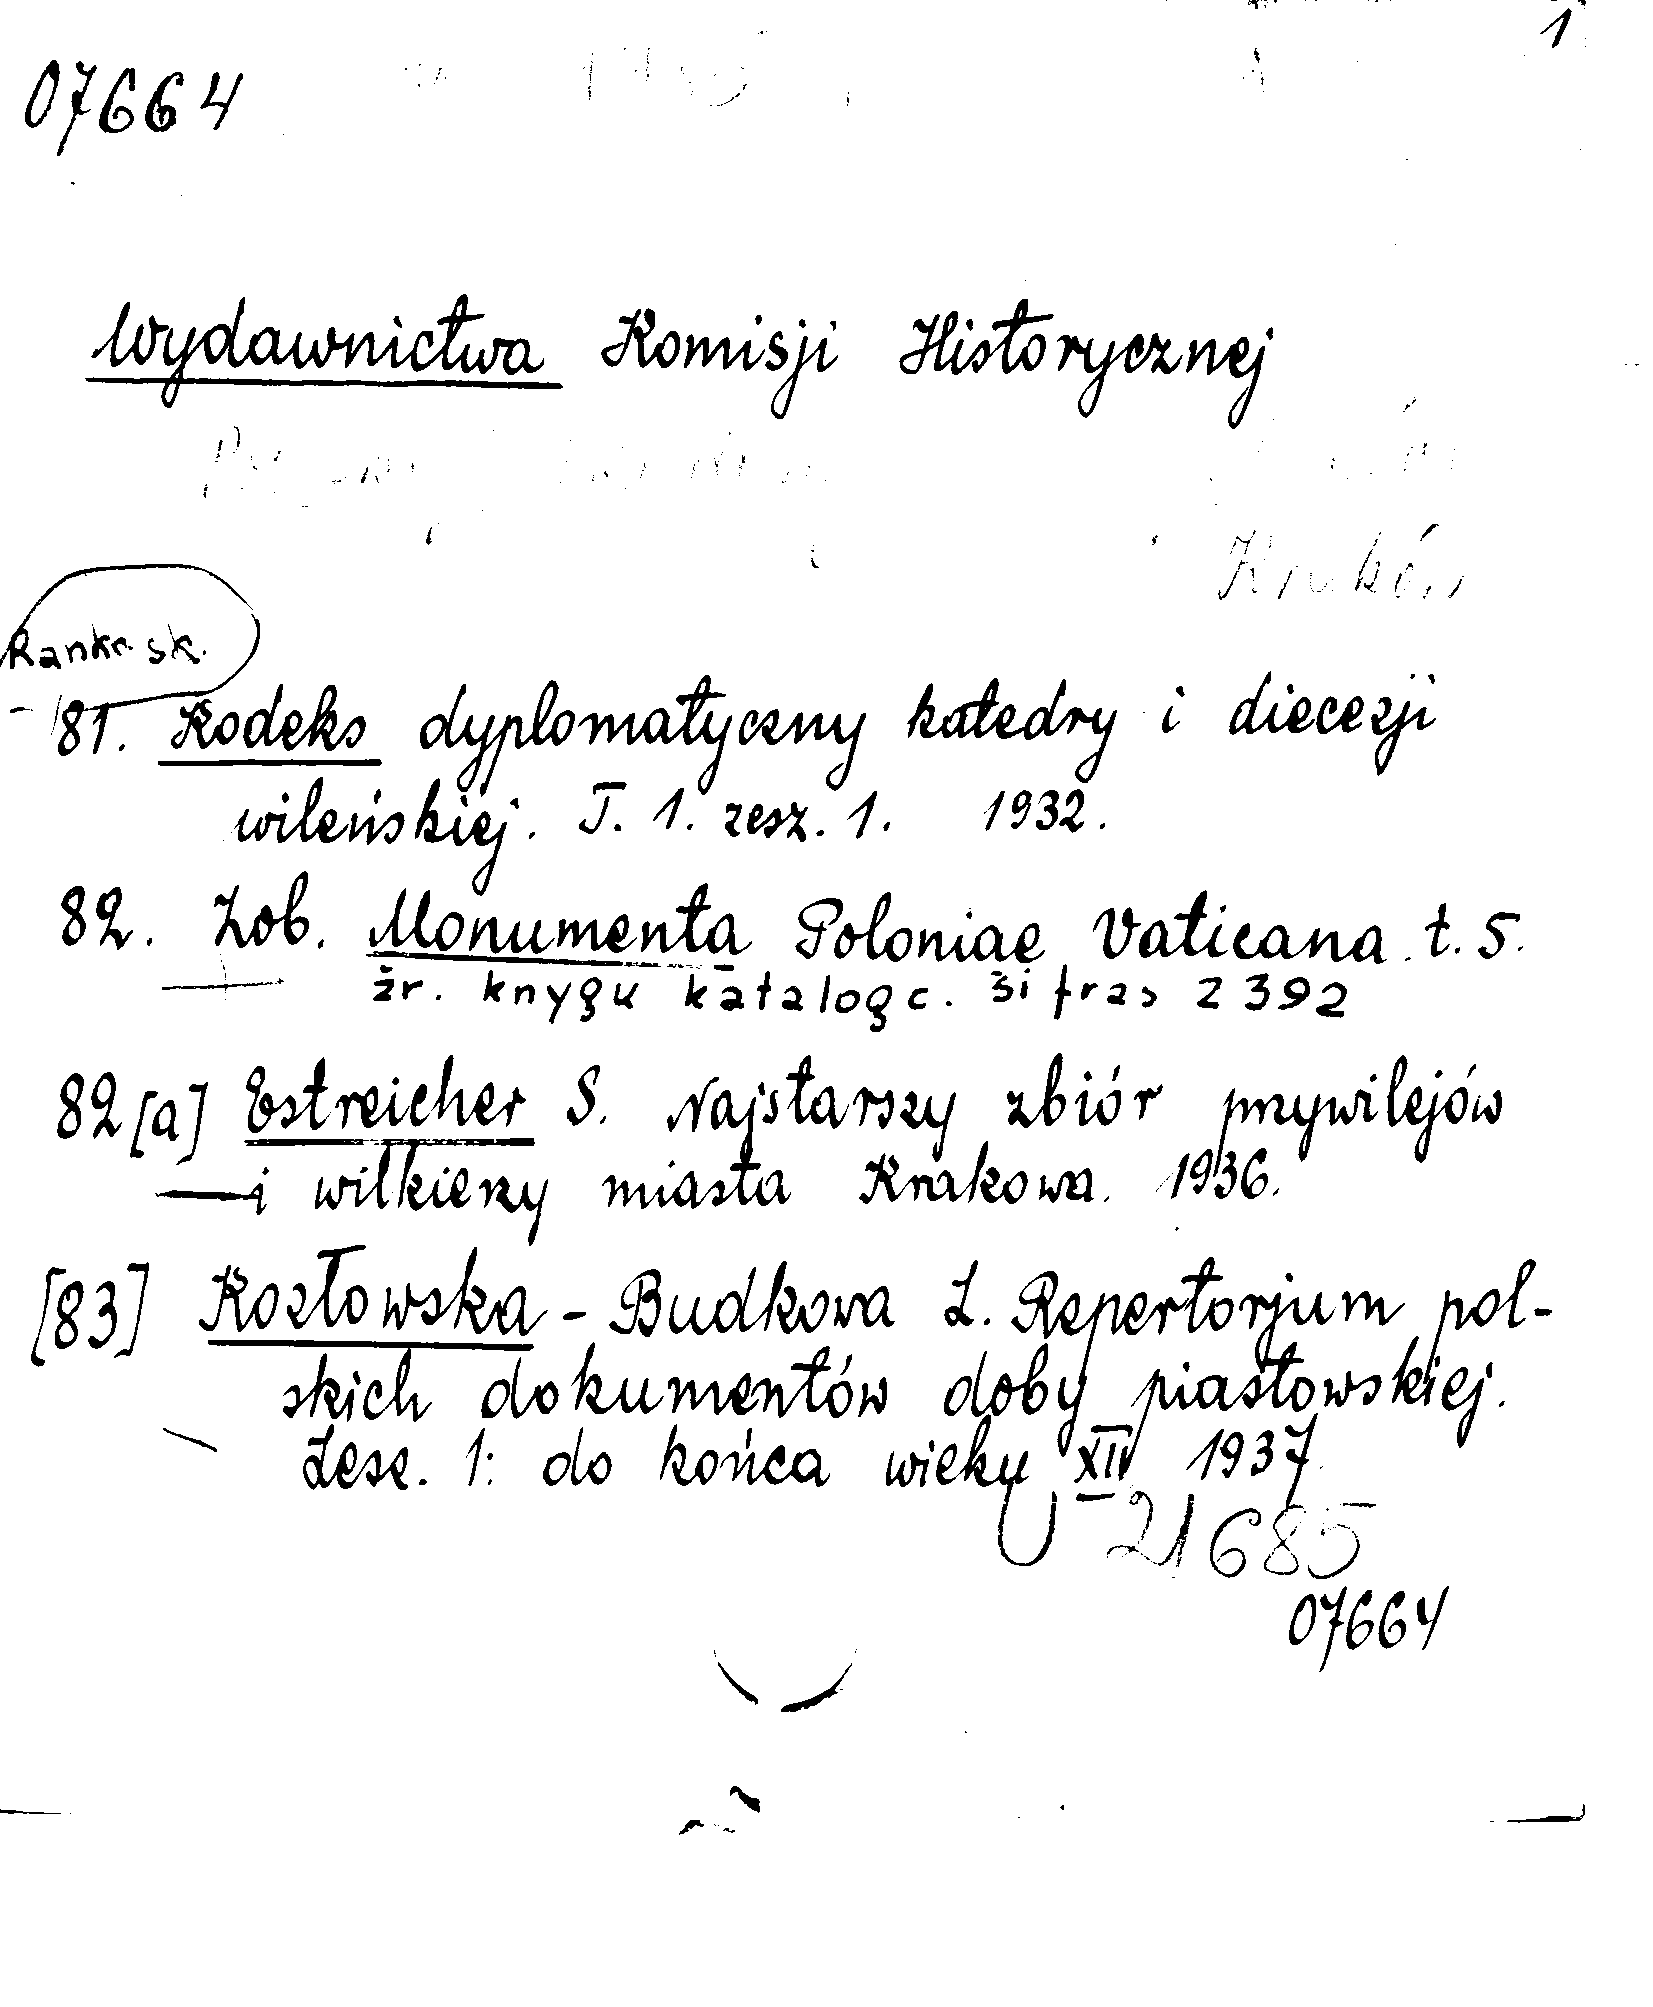 1
07664
Wydawnictwa Komisji Historycznej
Kraków
Rankr. sk.
81. Kodeks dyplomatyczny katedry i diecezji
wileńskiej. T. 1. zesz. 1. 1932.
82. Zob. Monumenta Poloniae Vaticana t. 5.
žr. knygų kataloge. šifras Z 392
82[a] Estreicher S. Najstarszy zbiór przywilejów
i wilkierzy miasta Krakowa. 1936.
[83] Kozłowska - Budkowa Z. Repertorjum pol-
skich dokumentów doby piastowskiej.
Zesz. 1: do końca wieku XII 1937.
U 21685
07664